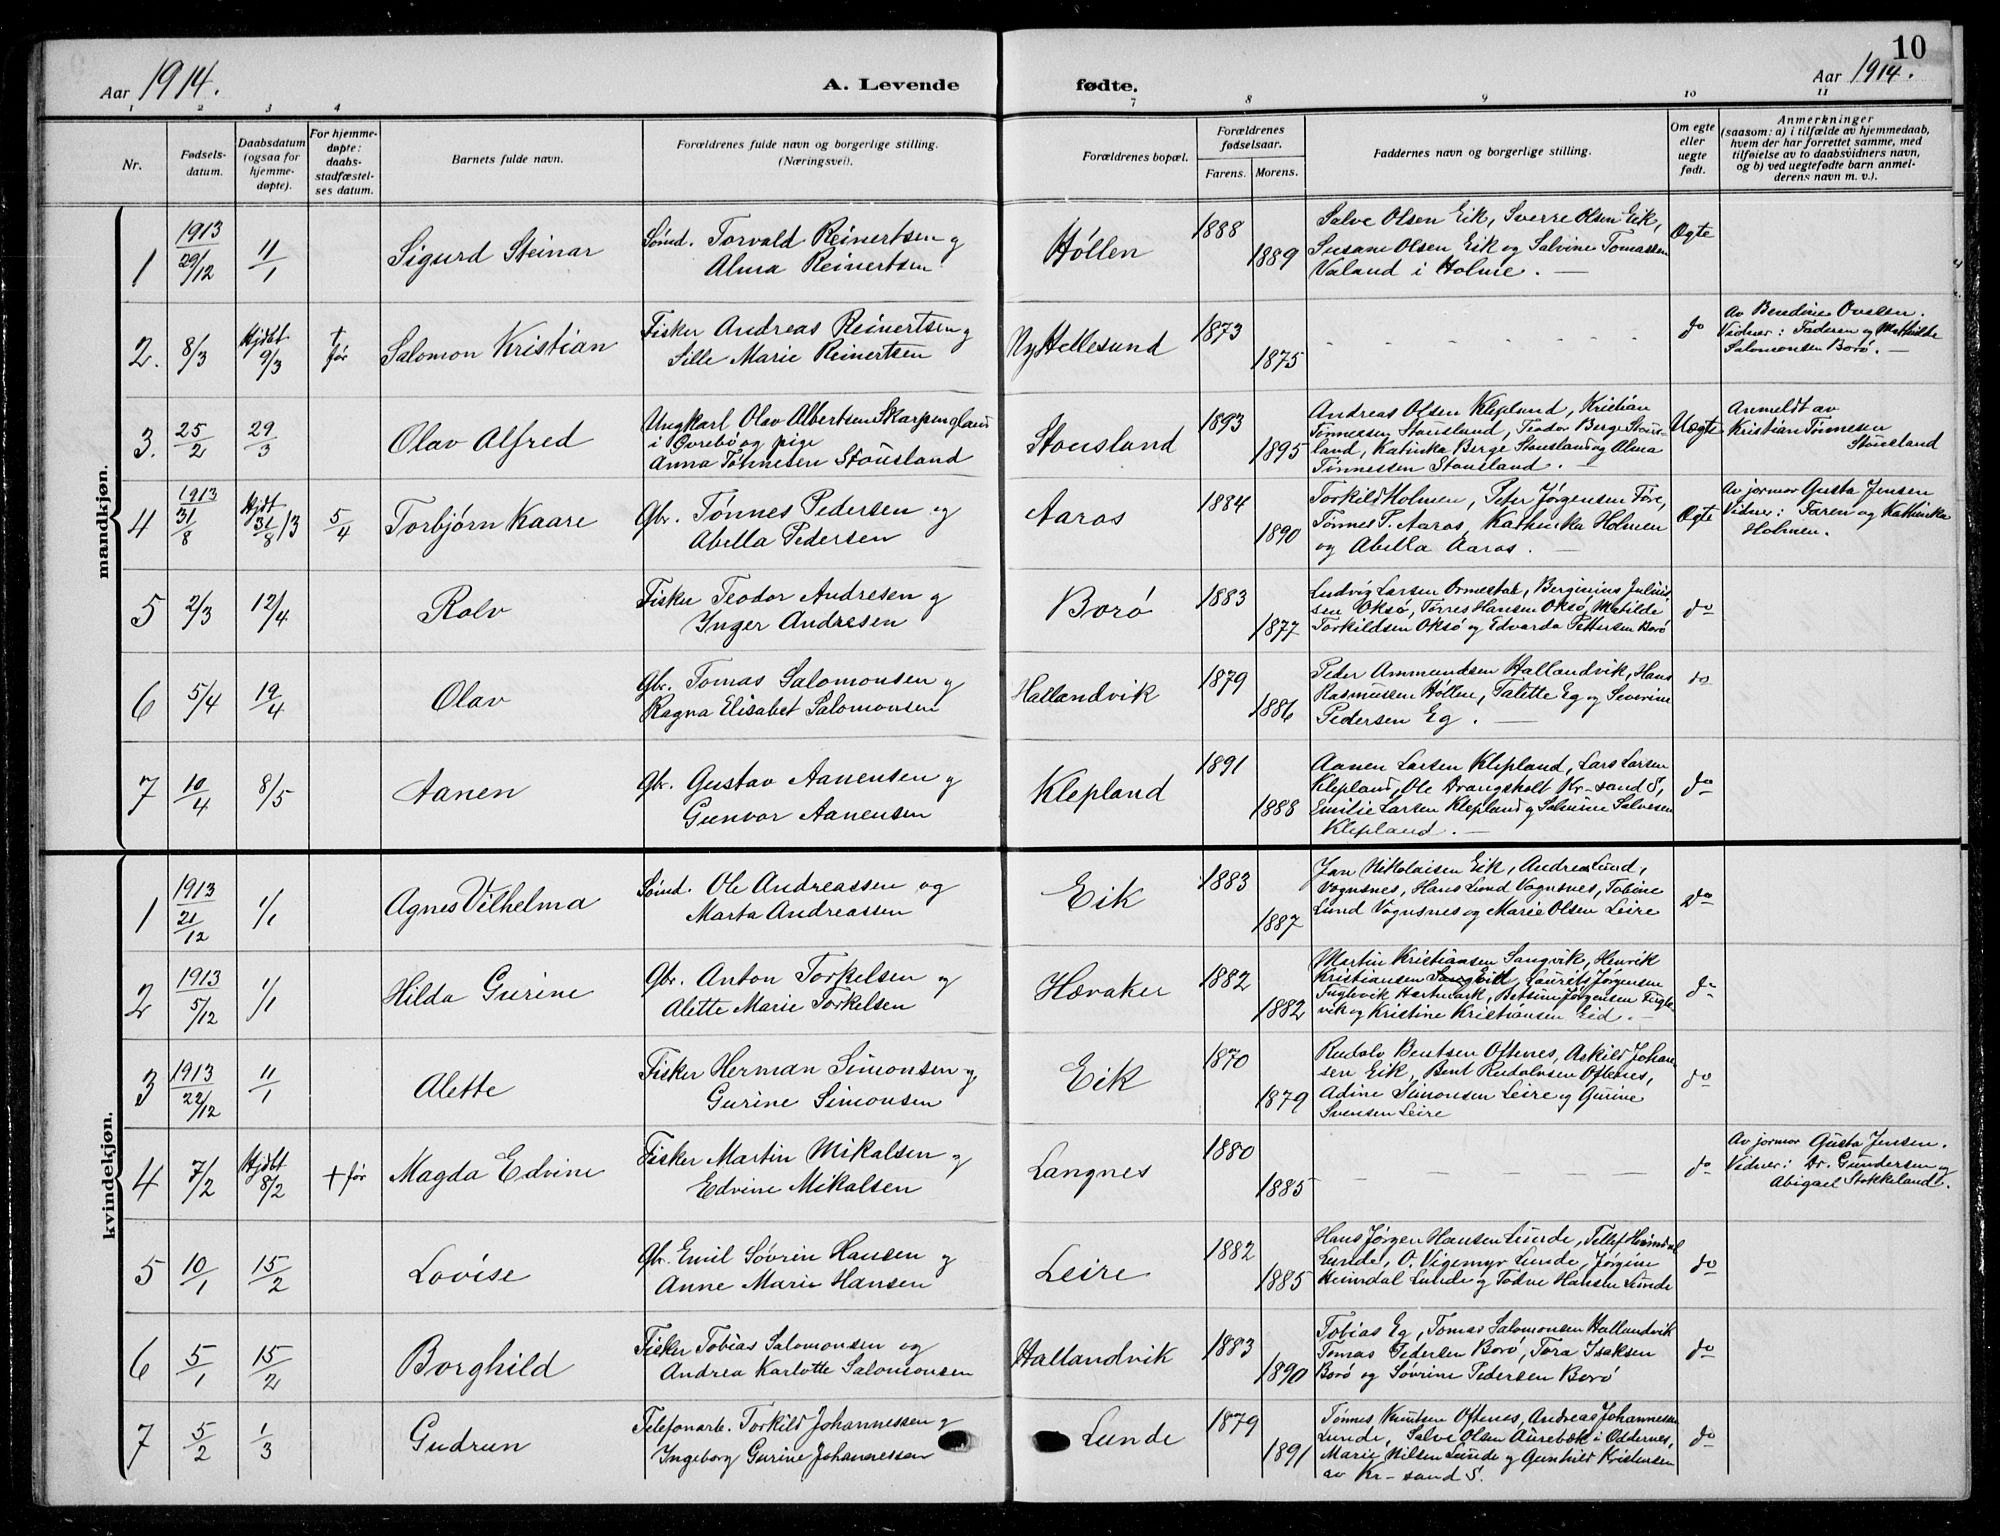 10
Aar 1914.
A. Levende fødte.
Aar 1914.
1 2 3 4 7 8 9 10 11
Nr.
Fødsels-
datum.
Daabsdatum
(ogsaa for
hjemme-
døpte).
For hjemme-
døpte:
daabs-
stadfæstel-
ses datum.
Barnets fulde navn.
Forældrenes fulde navn og borgerlige stilling.
(Næringsvei).
Forældrenes bopæl.
Forældrenes
fødselsaar.
Farens. Morens.
Faddernes navn og borgerlige stilling.
Om egte
eller
uegte
født.
Anmerkninger
(saasom: a) i tilfælde av hjemmedaab,
hvem der har forrettet samme, med
tilføielse av to daabsvidners navn,
og b) ved uegtefødte barn anmel-
derens navn m. v.).
mandkjøn.
1 1913 29/12 11/1 Sigurd Steinar
Sømd. Torvald Reinertsen og
Alma Reinertsen
Høllen 1888 1889
Salve Olsen Eik, Sverre Olsen Eik,
Susane Olsen Eik og Salvine Tomassen
Valand i Holme. —
Ægte
2. 8/3 Hjdbt 9/3 + før Salomon Kristian
Fisker Andreas Reinertsen og
Sille Marie Reinertsen
Ny Hellesund 1873 1875
do
Av Bendine Ovesen.
Vidner: Faderen og Mathilde
Salomonsen Borø. —
3. 25/2 29/3 Olav Alfred
Ungkarl Olav Albertsen Skarpengland
i Øvrebø og pige
Anna Tønnesen Stousland
Stousland 1893 1895
Andreas Olsen Klepland, Kristian
Tønnessen Stousland, Teodor Berge Stous-
land, Katinka Berge Stousland og Alma
Tønnessen Stousland. —
Uægte
Anmeldt av
Kristian Tønnesen
Stousland
4 1913 31/8 Hjdt 31/8 13 5/4 Torbjørn Kaare
Gbr. Tønnes Pedersen og
Abella Pedersen
Aaros 1884 1890
Torkild Holmen, Peter Jørgensen Føre,
Tønnes P. Aaros, Kathinka Holmen
og Abella Aaros. —
Ægte
Av jormor Gusta Jensen
Vidner: Faren og Kathinka
Holmen.
5 2/3 12/4 Rolv
Fisker Teodor Andresen og
Inger Andresen
Borø 1883 1877
Ludvig Larsen Ormestad, Berginius Julius-
sen Oksø, Tørres Hansen Oksø, Matilde
Torkildsen Oksø og Edvarda Pettersen Borø
do
6 5/4 19/4 Olav
Gbr. Tomas Salomonsen og
Ragna Elisabet Salomonsen
Hallandvik 1879 1886
Peder Ammundsen Hallandvik, Hans
Rasmussen Høllen, Talette Eg og Severine
Pedersen Eg. —
do
7 10/4 8/5 Aanen
Gbr. Gustav Aanensen og
Gunvor Aanensen
Klepland 1891 1888
Aanen Larsen Klepland, Lars Larsen
Klepland, Ole Drangsholt Kr-sand S,
Emilie Larsen Klepland og Salvine Salvesen
Klepland. —
do
kvindekjøn.
1 1913 21/12 1/1 Agnes Vilhelma
Sømd. Ole Andreassen og
Marta Andreassen
Eik 1883 1887
Jan Nikolaisen Eik, Andrea Lund,
Vognsnes, Hans Lund Vognsnes, Tobine
Lund Vognsnes og Marie Olsen Leire
Do
2 1913 5/12 1/1 Hilda Gurine
Gbr. Anton Torkelsen og
Alette Marie Torkelsen
Hævaker 1882 1882
Martin Kristiansen Sangvik, Henrik
Kristiansen Eid, Laurits Jørgensen
Fuglevik Hartmark, Betsine Jørgensen Fugle-
vik og Kristine Kristiansen Eid. —
do
3 1913 22/12 11/1 Alette
Fisker Herman Simonsen og
Gurine Simonsen
Eik 1870 1879
Rudolv Bentsen Oftenes, Askild Johan-
sen Eik, Bent Rudolvsen Oftenes,
Adine Simonsen Leire og Gurine
Svensen Leire
do
4 7/2 Hjdbt 8/2 + før Magda Edvine
Fisker Martin Mikalsen og
Edvine Mikalsen
Langnes 1880 1885
do
Av jormor Gusta Jensen.
Vidner: Dr. Gundersen og
Abigael Stokkeland.
5 10/1 15/2 Lovise
Gbr. Emil Søvrin Hansen og
Anne Marie Hansen
Leire 1882 1885
Hans Jørgen Hansen Lunde, Tellef Heimdal
Lunde, O. Vigemyr Lunde, Jørgine
Heimdal Lunde og Todne Hansen Lunde
do
6 5/1 15/2 Borghild
Fisker Tobias Salomonsen og
Andrea Karlotte Salomonsen
Hallandvik 1883 1890
Tobias Eg, Tomas Salomonsen Hallandvik
Tomas Pedersen Borø, Tora Isaksen
Borø og Søvrine Pedersen Borø
do
7 5/2 1/3 Gudrun
Telefonarb. Torkild Johannessen og
Ingeborg Gurine Johannessen
Lunde 1879 1891
Tønnes Knutsen Oftenes, Andreas Johannessen
Lunde, Salve Olsen Aurebæk i Oddernes,
Marie Nilsen Lunde og Gunhild Kristensen
av Kr-sand S.
do